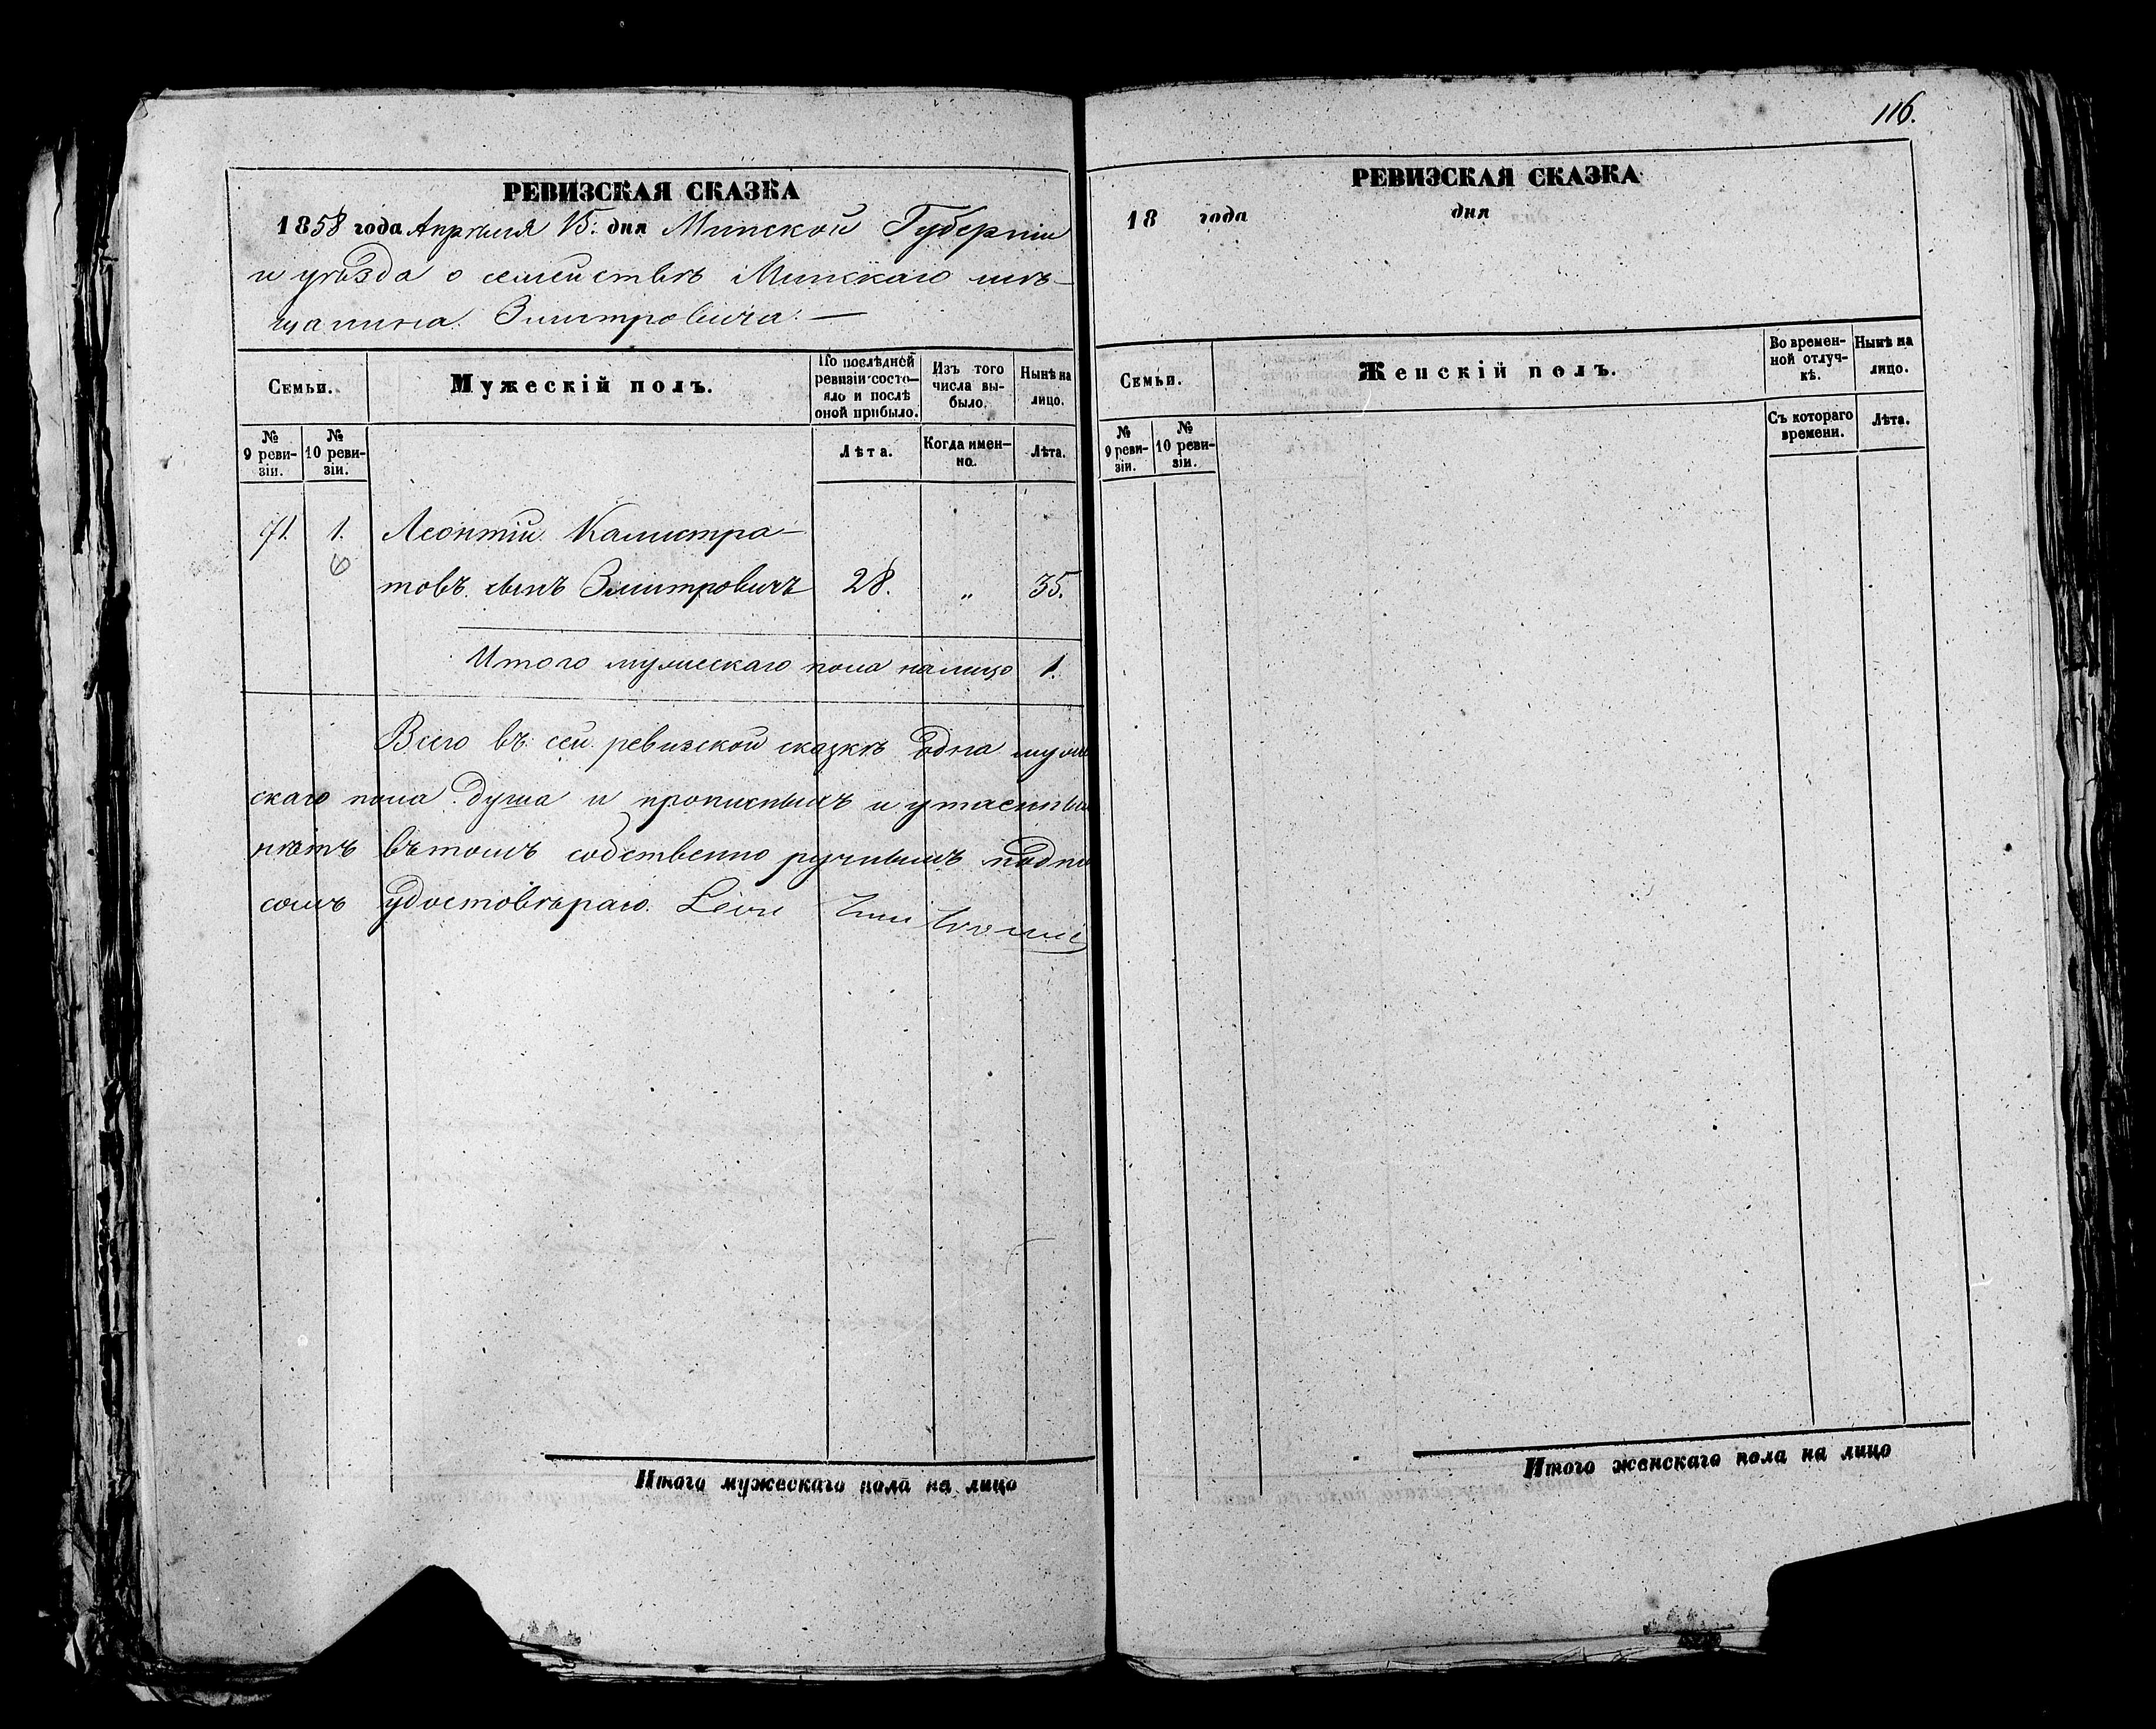 РЕВИЗСКАЯ СКАЗКА
1858 года Апрѣля 15. дня Минской Губерніи
и уѣзда о семействѣ Минскаго мѣ-
щанина Змитровича. —
Семьи.
Мужескій полъ.
По послѣдней
ревизіи состо-
яло и послѣ
оной прибыло.
Изъ того
числа вы-
было.
Нынѣ на
лицо.
№
9 реви-
зіи.
№
10 реви-
зіи.
Лѣта.
Когда имен-
но.
Лѣта.
71. 1. Леонтій Калистра-
6
товъ сынъ Змитровичъ 28. „ 35.
Итого мужескаго пола налицо 1.
Всего въ сей ревизской сказкѣ одна муже
скаго пола душа и прописныхъ и утаенны
нѣтъ въ томъ собственно ручнымъ подпи
сомъ удостовѣряю. Leon Zmitrowicz
Итого мужескаго пола на лицо
116.
РЕВИЗСКАЯ СКАЗКА
18 года дня
Семьи.
Женскій полъ.
Во времен-
ной отлуч-
кѣ.
Нынѣ на
лицо.
№
9 реви-
зіи.
№
10 реви-
зіи.
Съ котораго
времени.
Лѣта.
Итого женскаго пола на лицо